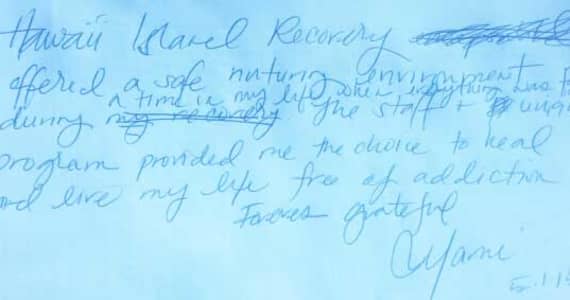 Hawaii Island Recovery
offered a safe nuturing environment
a time in my life when everything was
during my recovery The staff +
program provided me the choice to heal
and live my life free of addiction
Forever grateful